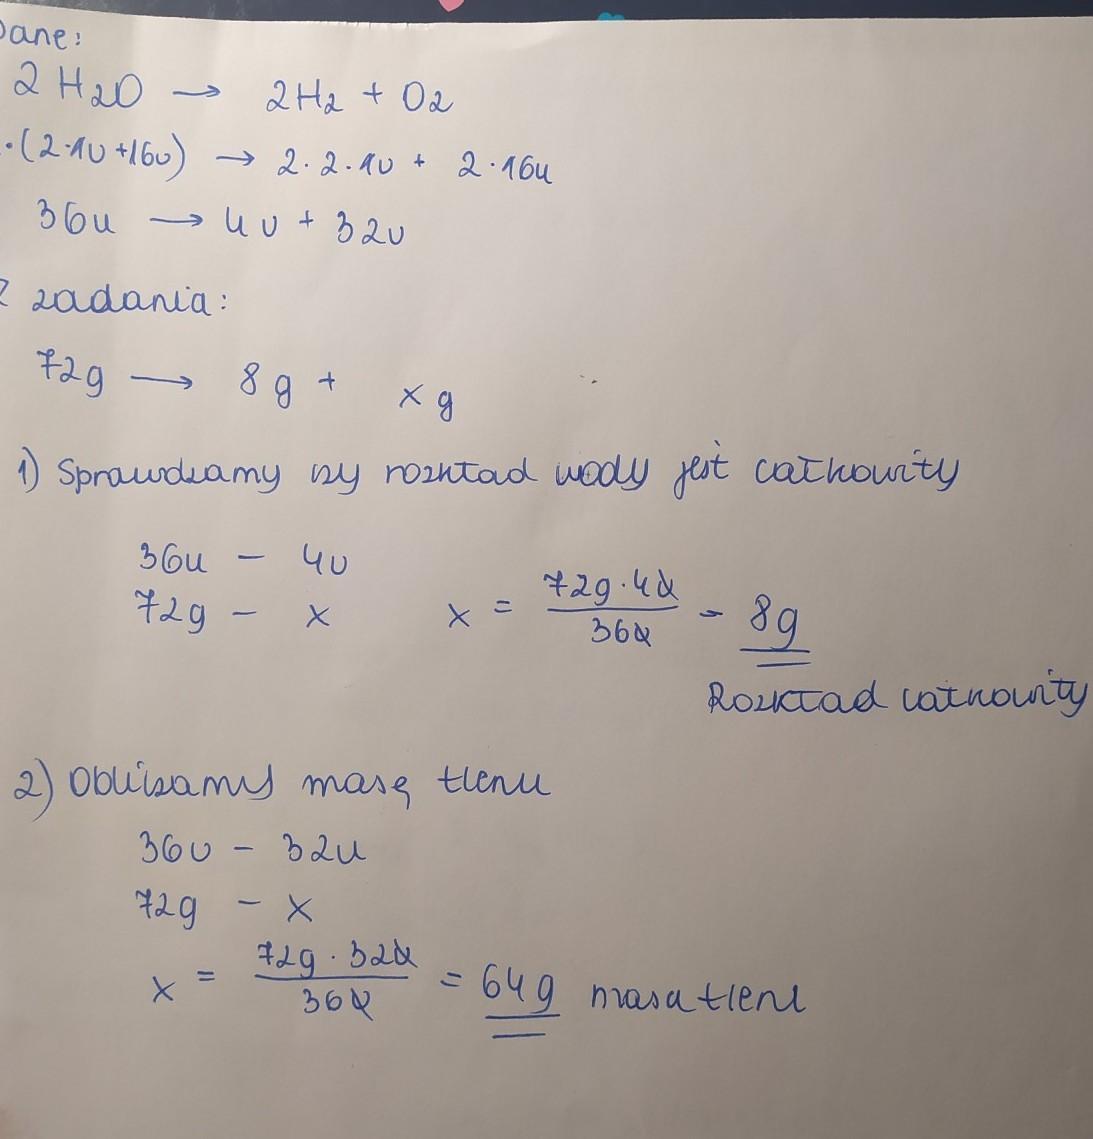 Dane:
2 H2O → 2H2 + O2
·(2·1u+16u) → 2·2·1u + 2·16u
36u → 4u + 32u
Z zadania:
72g → 8g + x g
1) Sprawdzamy czy rozkład wody jest całkowity
36u - 4u
72g - x x = 72g·4u / 36u = 8g
Rozkład całkowity
2) Obliczamy masę tlenu
36u - 32u
72g - x
x = 72g · 32u / 36u = 64g masa tlenu